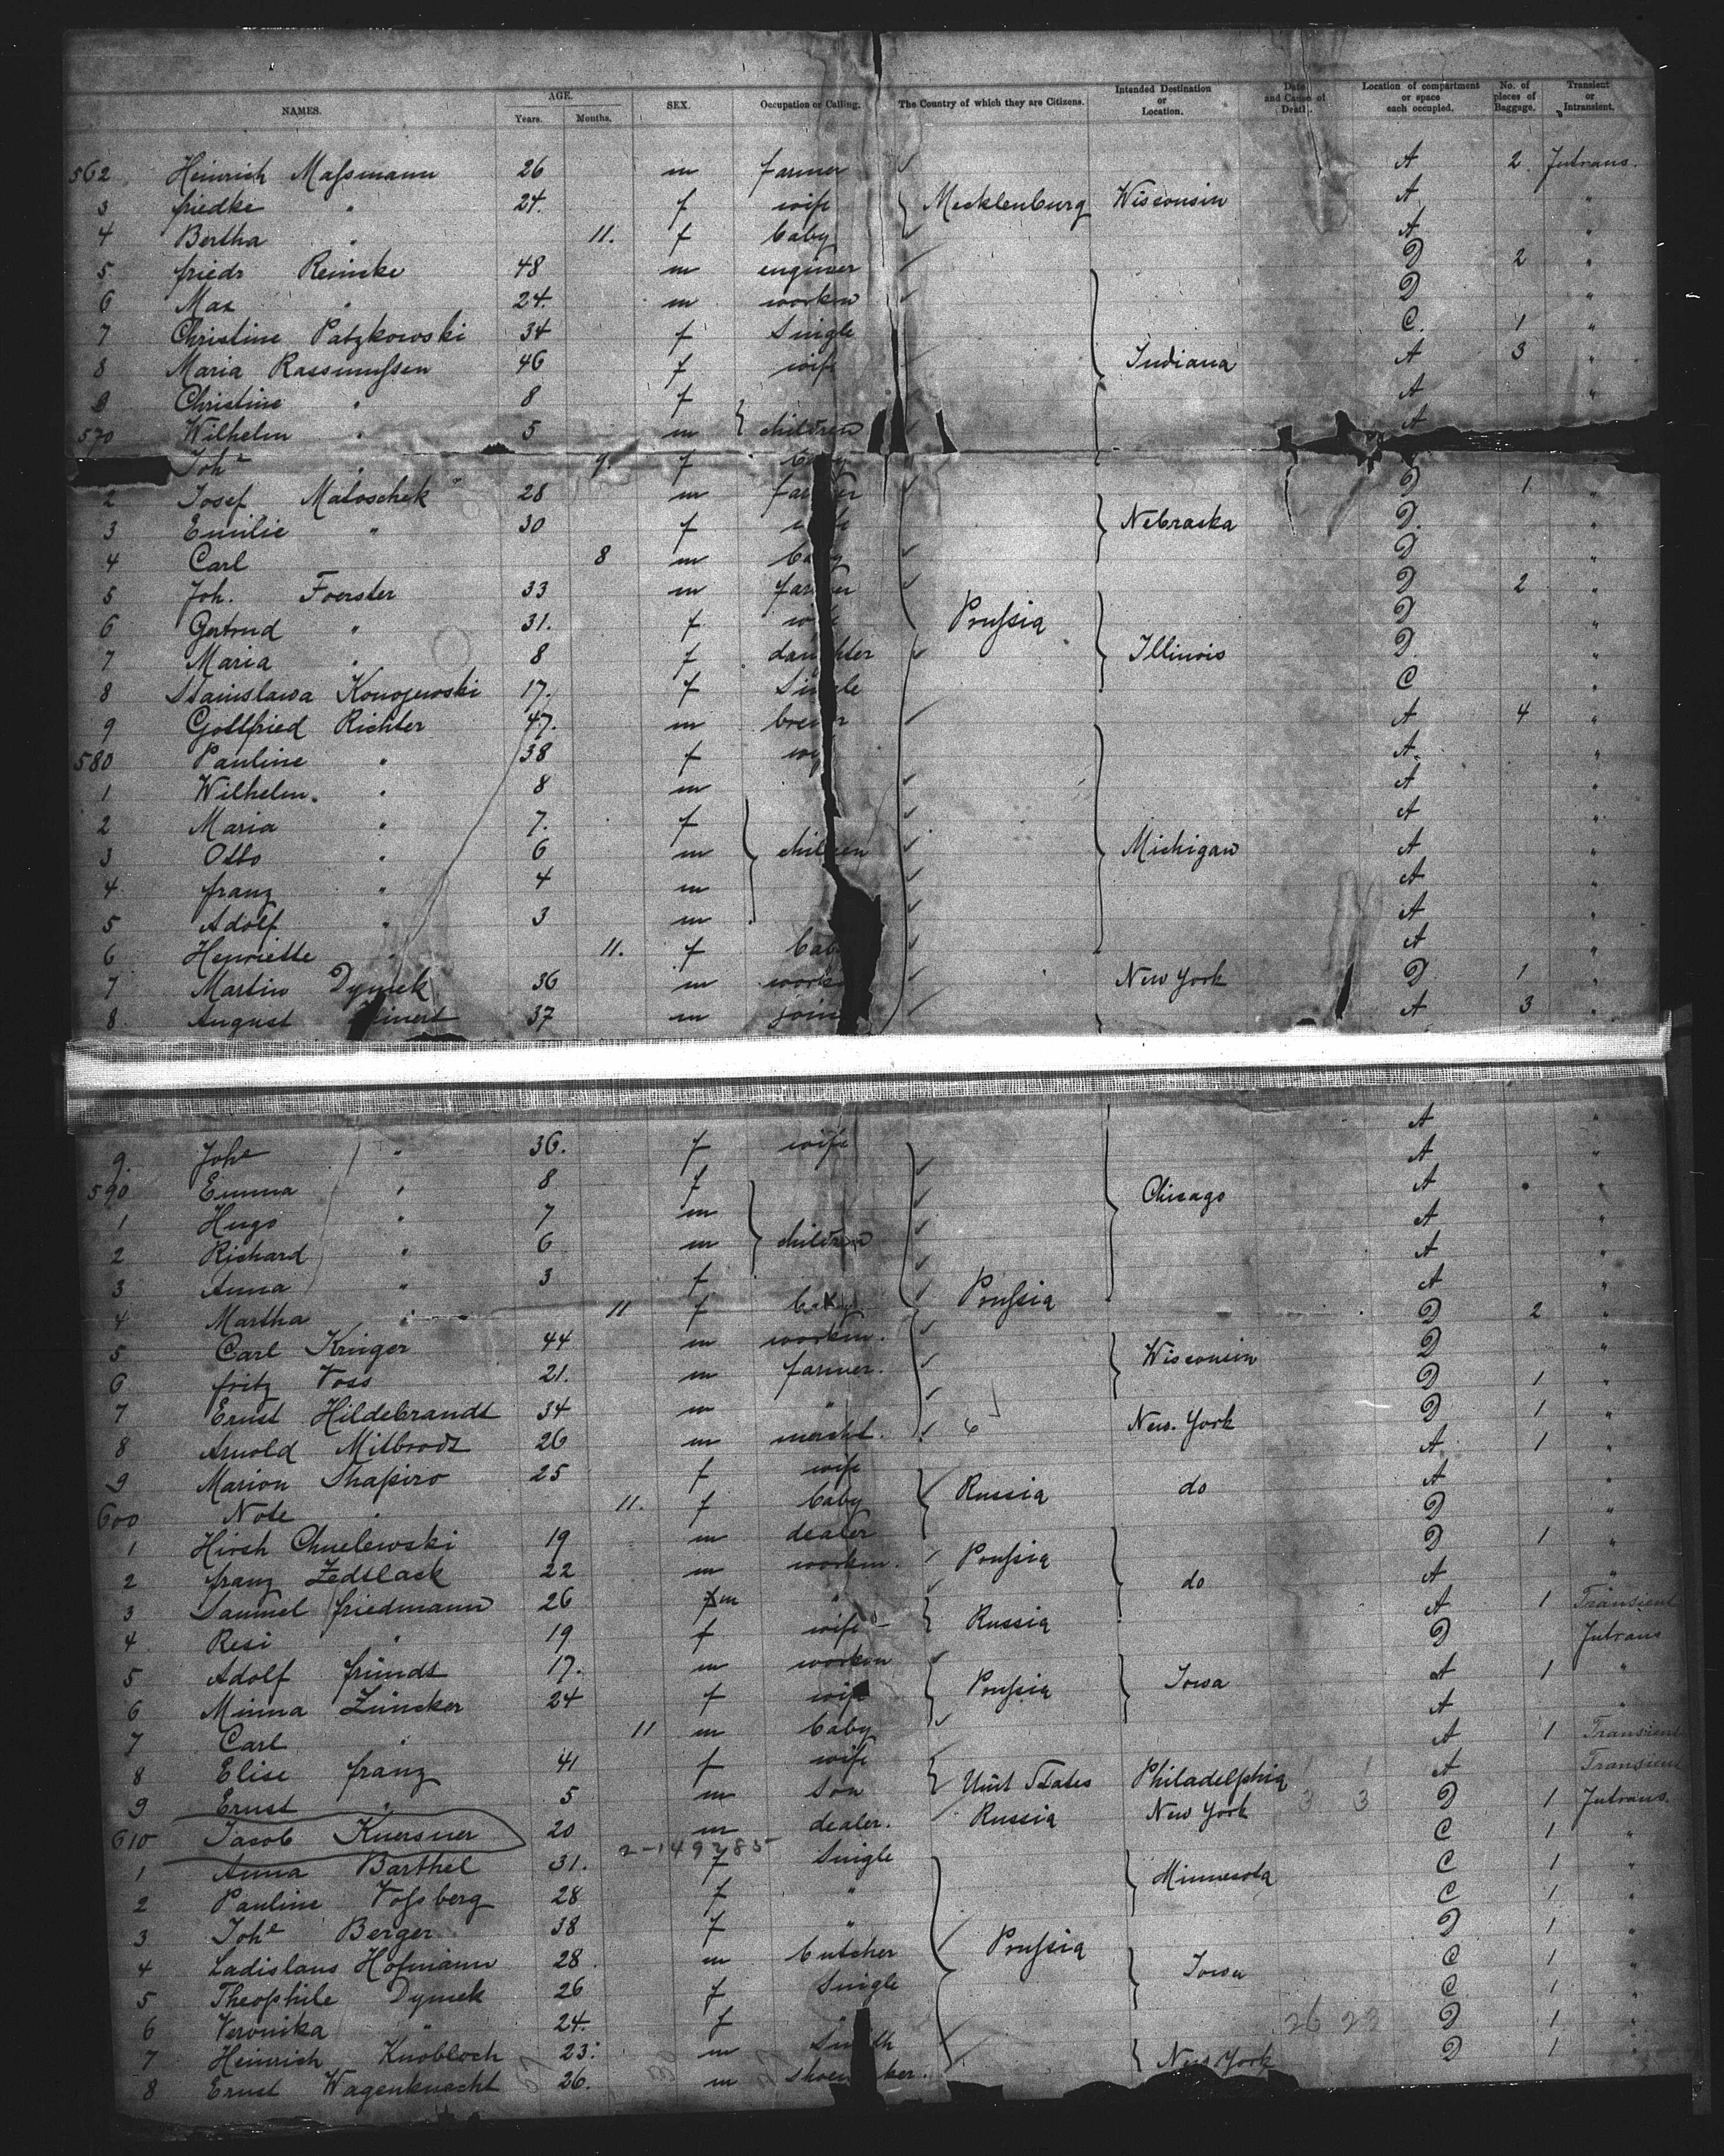 NAMES. AGE. Years. Months. SEX. Occupation or Calling. The Country of which they are Citizens. Intended Destination or Location. Date and Cause of Death. Location of compartment or space each occupied. No. of pieces of Baggage. Transient or Intransient.
562 Heinrich Maſsmann 26 m farmer A 2 Intrans.
3 friedke " 24. f wife Mecklenburg Wisconsin A "
4 Bertha " 11. f baby A "
5 friedr Reincke 48 m engineer D 2 "
6 Max " 24. m workm D "
7 Christine Patzkowski 34 f Single C. 1 "
8 Maria Rassmuſsen 46 f wife Indiana A 3 "
9 Christine " 8 f A "
570 Wilhelm " 5 m children A
Johe " 9. f baby
2 Josef Matoschek 28 m farmer D 1 "
3 Emilie " 30 f Nebraska D. "
4 Carl 8 m baby D "
5 Joh. Foerster 33 m farmer D 2 "
6 Gertrud " 31. f wife Pruſsia D "
7 Maria " 8 f daughter Illinois D. "
8 Stanislawa Konojewski 17. f Single C "
9 Gottfried Richter 47. m brewer A 4 "
580 Pauline " 38 f A. "
1 Wilhelm. " 8 m A "
2 Maria " 7. f A "
3 Otto " 6 m children Michigan A "
4. franz " 4 m A "
5 Adolf " 3 m A "
6 Henriette " 11. f baby A "
7 Martin Dymek 36 m work New York D 1 "
8. August 37 m join A 3 "
9. Johe " 36. f wife A "
590 Emma " 8 f Chicago A "
1 Hugo " 7 m A "
2 Richard " 6 m children A "
3 Anna " 3 f A "
4 Martha " 11 f baby Pruſsia D 2 "
5 Carl Krüger 44 m workm. D "
6 fritz Voss 21. m farmer. Wisconsin D 1 "
7 Ernst Hildebrandt 34 m " D 1 "
8 Arnold Milbrodt 26 m mercht. New. York A 1 "
9 Marion Shapiro 25 f wife Russia do A "
600 Note " 11. f baby D "
1 Hirsh Chmelewski 19 m dealer D 1 "
2 franz Zedslack 22 m workm. Pruſsia do A "
3 Samuel friedmann 26 m " Russia A 1 Transient
4. Resi " 19 f wife D Intrans
5 Adolf fründt 17. m workm Pruſsia Iowa A 1 "
6 Minna Züncker 24 f wife A "
7 Carl " 11 m baby A 1 Transient
8 Elise franz 41 f wife Unit States Philadelphia A Transient
9 Ernst " 5 m Son 3 3 D 1 Intrans.
610 Jacob Kuersner 20 m dealer. Russia New York C 1 "
2-149785
1 Anna Barthel 31. f Single C 1 "
2 Pauline Voſsberg 28 f " Minnesota C 1 "
3 Johe Berger 38 f " D 1 "
4 Ladislaus Hofmann 28. m butcher Pruſsia Iowa C 1 "
5 Theophile Dymek 26 f Single C 1 "
6 Veronika " 24. f 26 D 1 "
7 Heinrich Knobloch 23. m Smith D 1 "
8 Ernst Wagenknecht 26. m shoemaker. New York